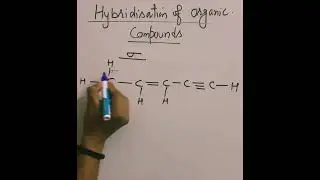 Hybridisation of organic
Compounds
σ
H
H – C – C = C – C ≡ C – H
H H